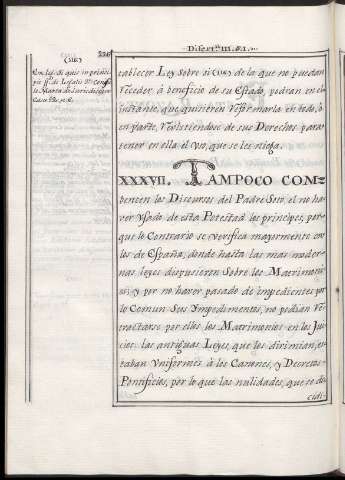 336
Disert.ⁿ III. §. I.
(118)
tablecer Ley sobre si (118) de la que no puedan
receder à beneficio de su Estado, podran en el
instante, que quisieren reformarla en todo, ò
en parte, revistiendose de sus Derechos para
tener en ella el vso, que se les niega.
XXXVII. TAMPOCO CON-
vencen los Discursos del Padre Soto, el no ha-
ver vsado de esta Potestad los principes; por-
que lo Contrario se verifica mayormente en
los de España, donde hasta las mas moder-
nas leyes dispusieron Sobre los Matrimoni-
os, y por no haver pasado de impedientes por
lo Comun Seis Impedimentos, no podian re-
tractarse por ellos los Matrimonios en los Jui-
cios: las antiguas Leyes, que los dirimian, es-
taban vniformes à los Canones, y Decretos
Pontificios, por lo que las nulidades, que se de-
cidi-